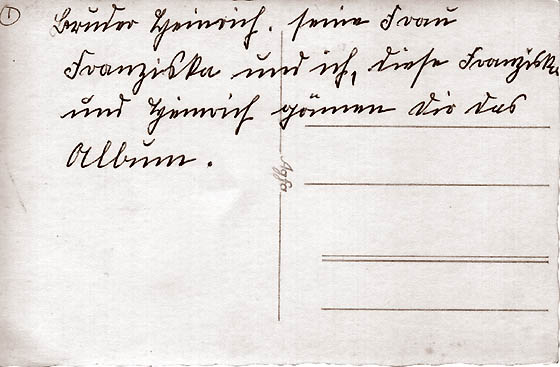 1
Bruder Heinrich. seine Frau
Franziska und ich, diese Franziska
und Heinrich gönnen Dir das
Album.
Agfa